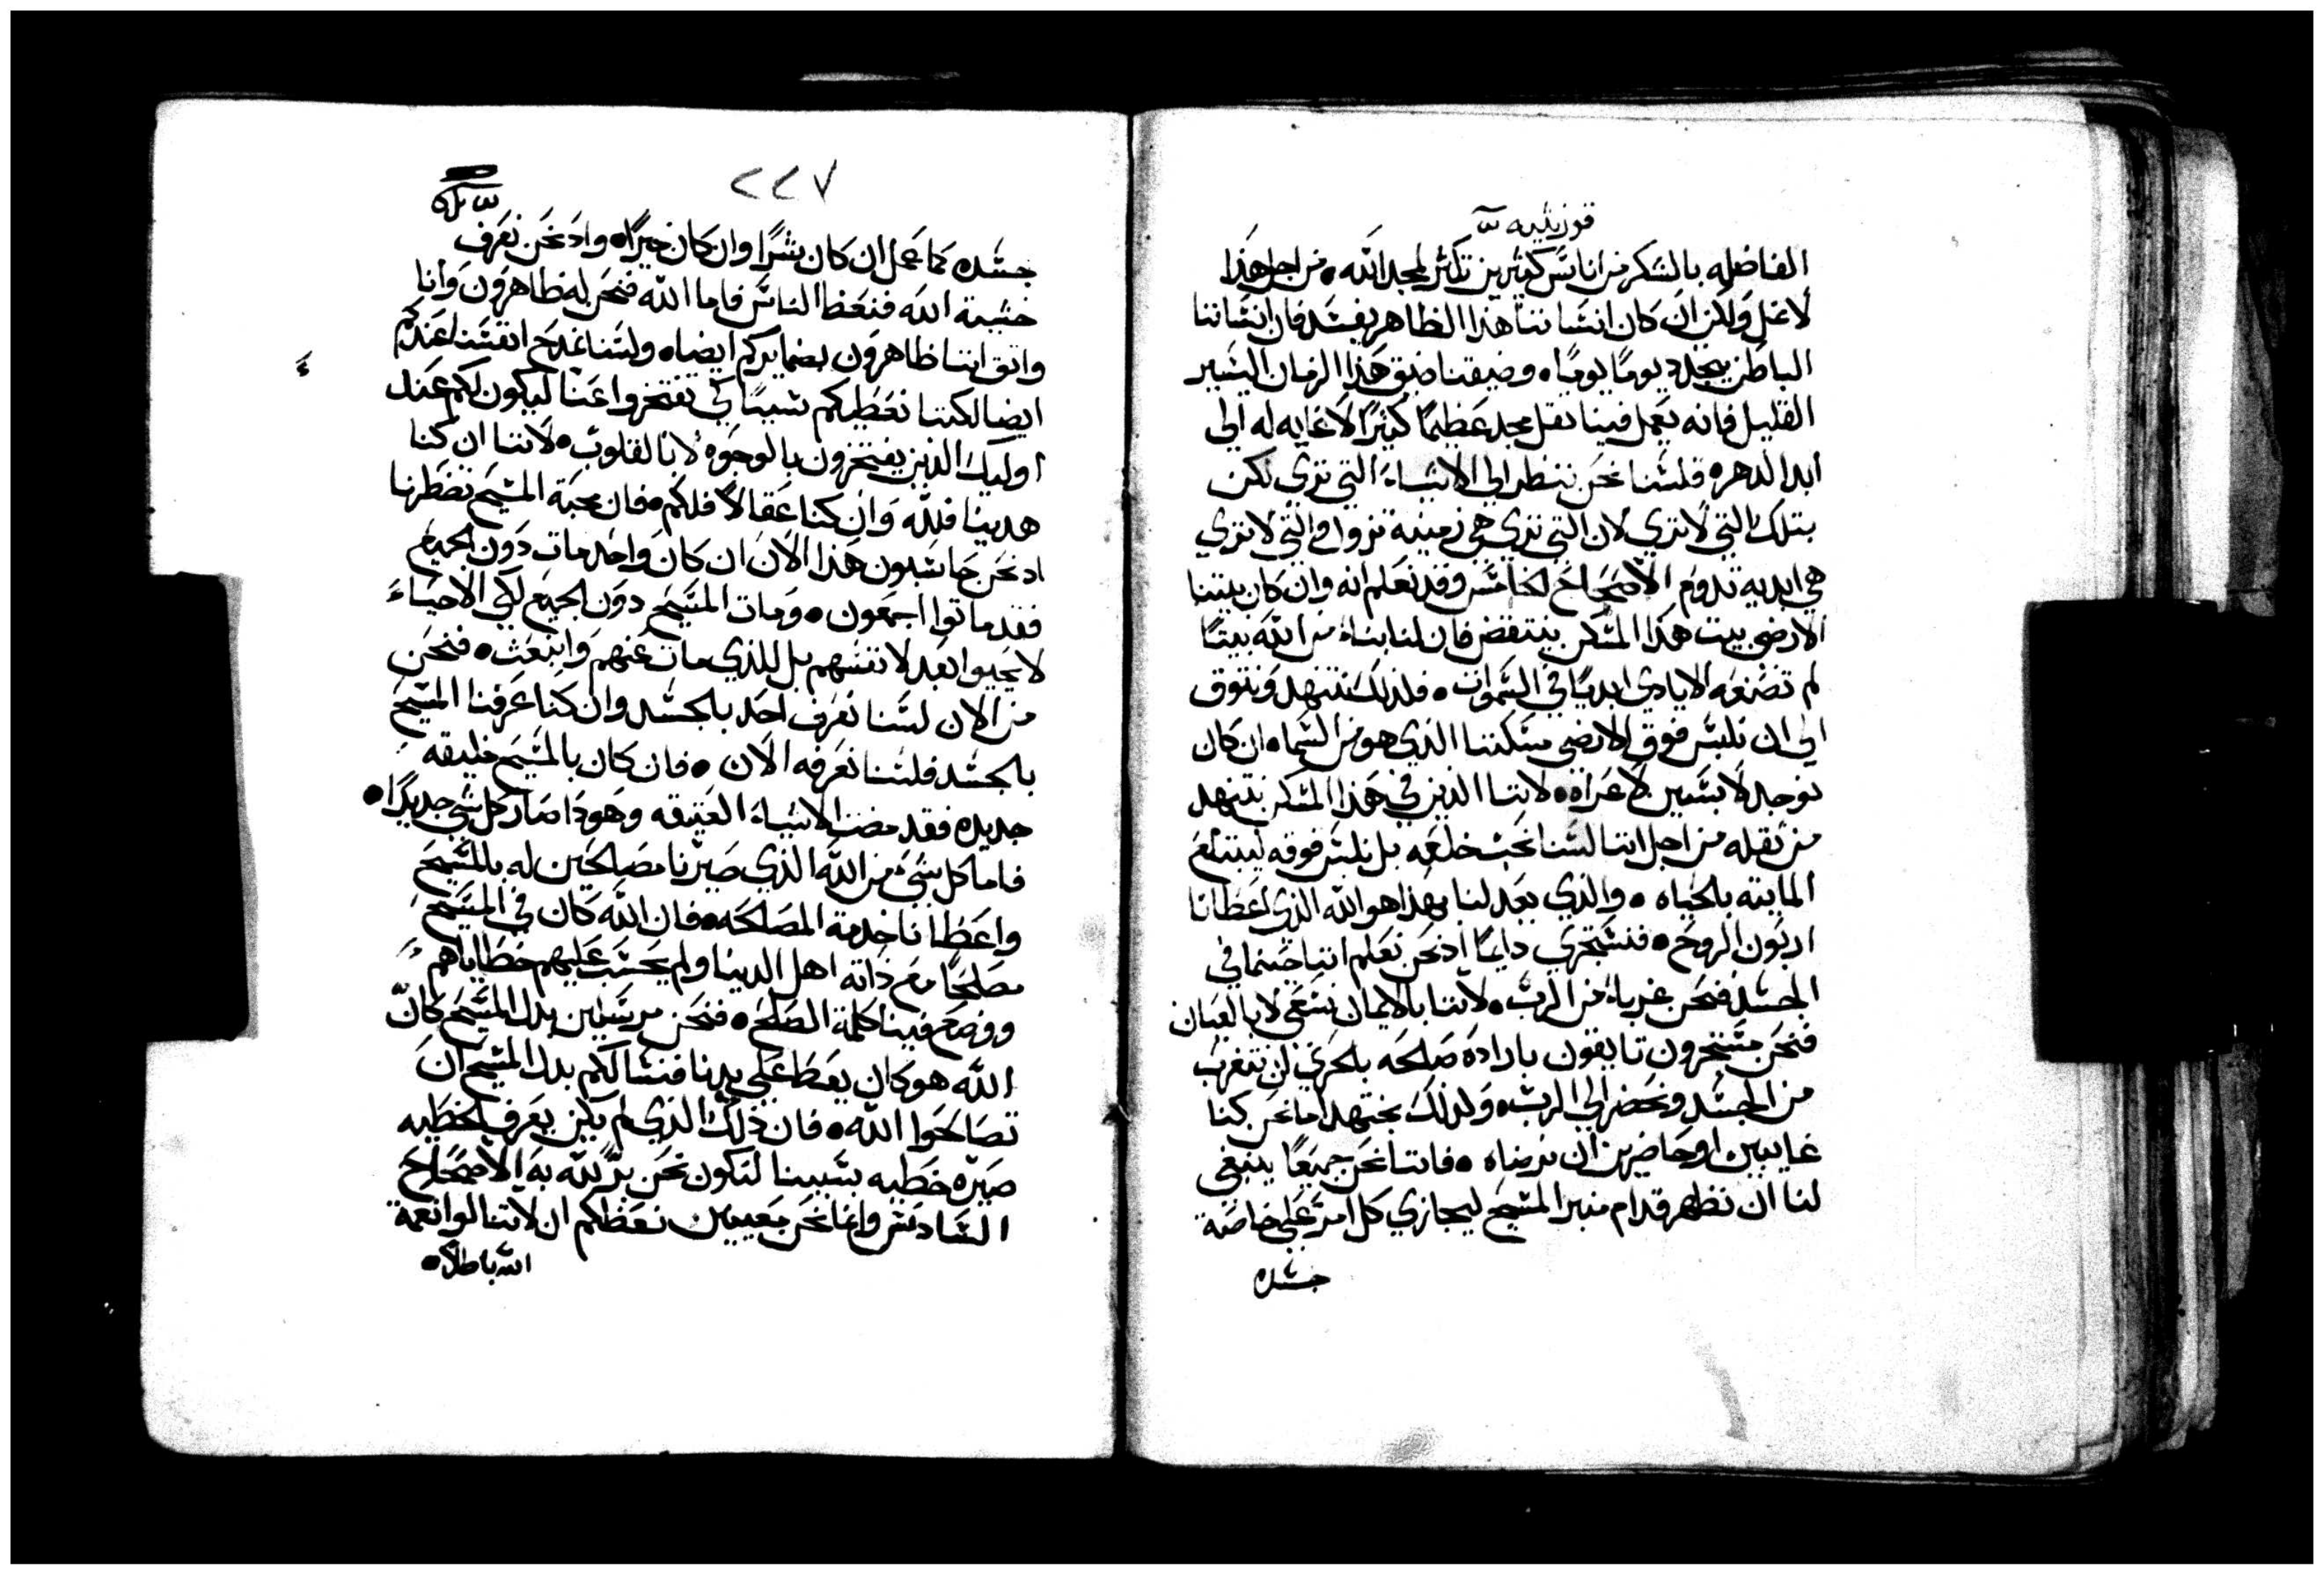 قورنثيه
الفاضله بالشكر من اناس كثيرين تكثر لمجد الله • من اجل هذا
لا نمل ولكن ان كان انساننا هذا الظاهر يفسد فان انساننا
الباطن يتجدد يوما يومًا • وضيقنا ضيق هذا الزمان اليسير
القليل فانه يعمل فينا ثقل مجد عظيمًا كثيرًا لا غايه له الي
ابد الدهر • فلسنا نحن ننظر الي الاشياء التي تري لكن
بتلك التي لا تري لان التي تري هي زمنية تزول والتي لا تري
هي ابديه تدوم الاصحاح الخامس وقد نعلم انه وان كان بيتنا
الارضي بيت هذا المسكن ينتقض فان لنا بناء من الله بيتًا
لم تصنعه الايادي ابديًا في السموات • فلذلك نتنهد ونتوق
الي ان نلبس فوق الارضي مسكننا الذي هو من السما • ان كان
نوجد لابسين لا عراه • لاننا الذين في هذا المسكن نتنهد
من ثقله من اجل اننا لسنا نحب خلعه بل نلبس فوقه ليبتلع
المايته بالحياه • والذي يعد لنا بهذا هو الله الذي اعطانا
اربون الروح • فنستجري دايمًا اد نحن نعلم اننا حيثما في
الجسد فنحن غرباء من الرب • لاننا بالايمان نسعي لا بالعيان
فنحن مستجرون تايقون بارادة صالحه بالحري ان نتغرب
من الجسد ونحضر الي الرب • ولذلك نجتهد اما نحن كنا
غايبين او حاضرين ان نرضاه • فاننا نحن جميعًا ينبغي
لنا ان نظهر قدام منبر المسيح ليجازي كل امر علي خاصة
جسده
٢٢٧
جسده كما عمل ان كان شرًا وان كان خيرًا • واد نحن نعرف
خشية الله فنعظ الناس فاما الله فنحن له ظاهرون وانا
واثق اننا ظاهرون بضمايركم ايضا • ولسنا نمدح انفسنا عندكم
ايضا لكننا نعطيكم سببًا كي تفتخروا عنا ليكون لكم عند
اوليك الذين يفتخرون بالوجوه لا بالقلوب • لاننا ان كنا
هدينا فلله وان كنا عقالا فلكم • فان محبة المسيح تضطرنا
اد نحن حاسبون هذا الان ان كان واحد مات دون الجميع
فقد ماتوا اجمعون • ومات المسيح دون الجميع لكي الاحياء
لا يحيوا بعد لانفسهم بل للذي مات عنهم وانبعث • فنحن
من الان لسنا نعرف احد بالجسد وان كنا عرفنا المسيح
بالجسد فلسنا نعرفه الان • فان كان بالمسيح خليقه
جديده فقد مضت الاشياء العتيقه وهودا صار كل شي جديدًا •
فاما كل شيء من الله الذي صيرنا مصالحين له بالمسيح
واعطانا خدمة المصالحه • فان الله كان في المسيح
مصالحًا مع ذاته اهل الدنيا ولم يحسب عليهم خطاياهم
ووضع فينا كلمة الصلح • فنحن مرسلين بدل المسيح كان
الله هو كان يعظ علي يدنا فنسالكم بدل المسيح ان
تصالحوا الله • فان ذلك الذي لم يكن يعرف الخطيه
صيره خطيه بسببنا لنكون نحن بر لله به الاصحاح
السادس وانما نحن معينين نعظكم ان لا تنالوا نعمة
الله باطلا •